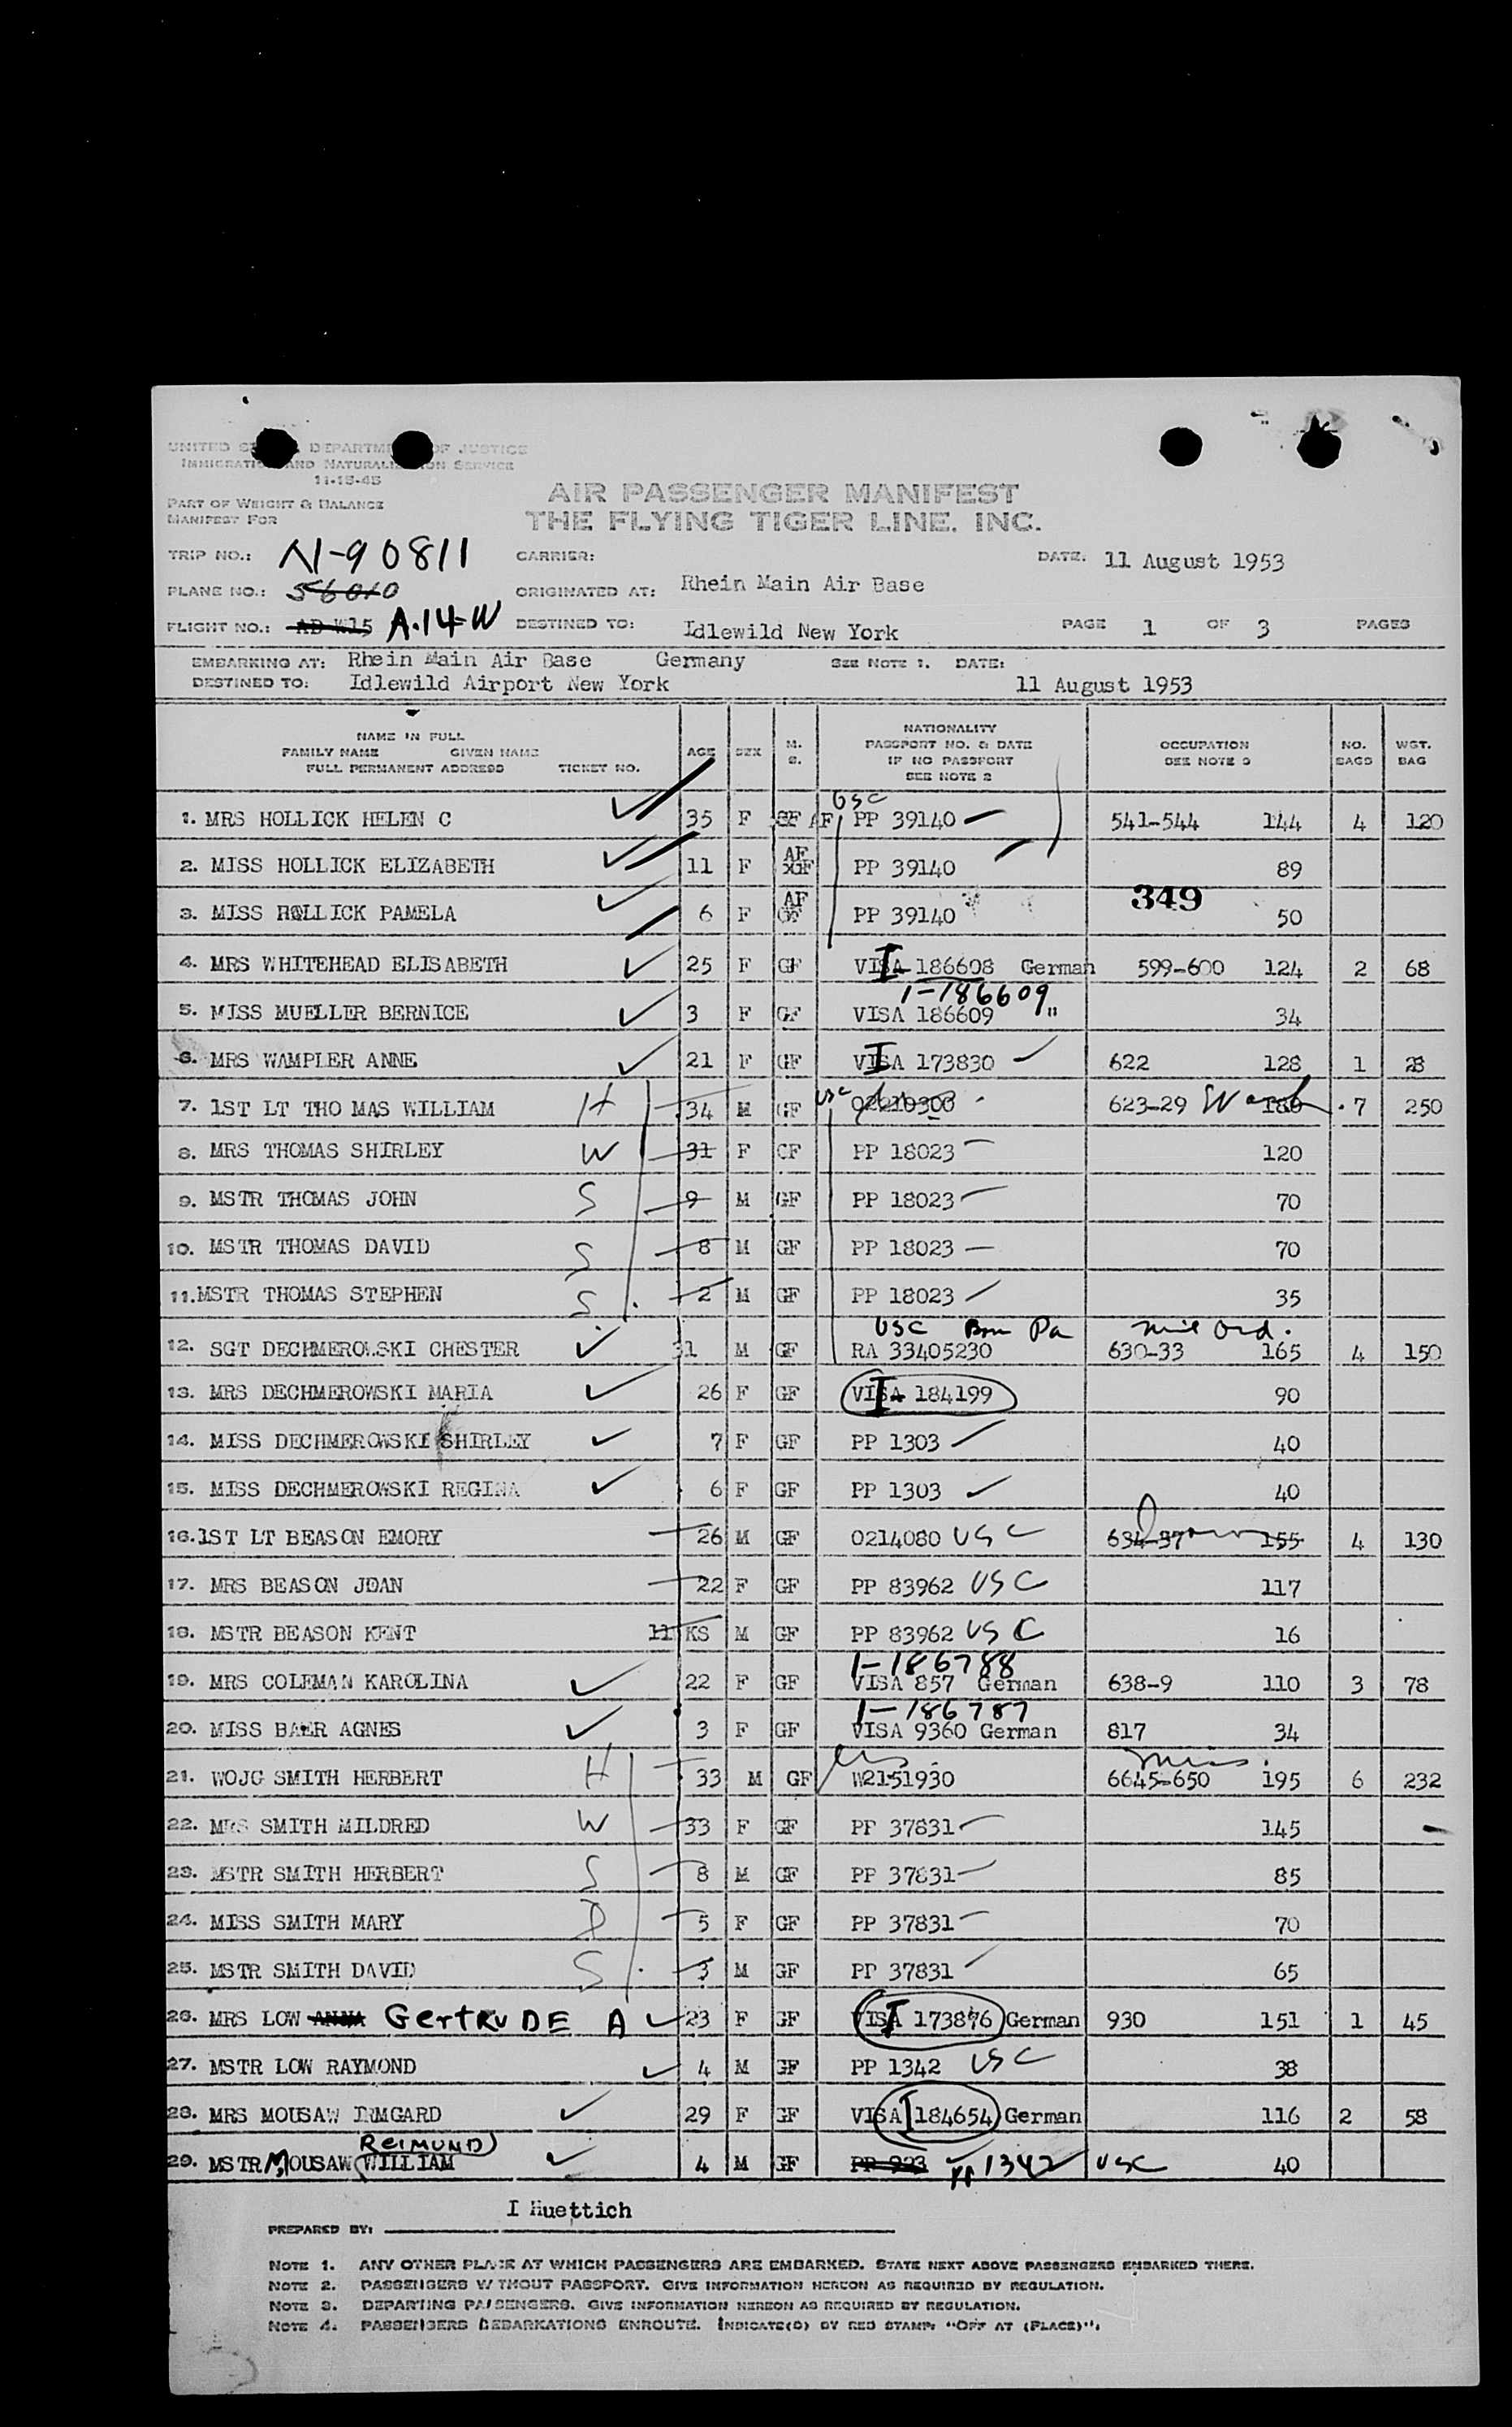 UNITED DEPARTMENT OF JUSTICE
IMMIGRATION AND NATURALIZATION SERVICE
11-15-45
PART OF WEIGHT & BALANCE
MANIFEST FOR
AIR PASSENGER MANIFEST
THE FLYING TIGER LINE, INC.
TRIP NO.: N-90811 CARRIER: DATE: 11 August 1953
PLANE NO.: 56010 ORIGINATED AT: Rhein Main Air Base
FLIGHT NO.: AD W15 A-14-W DESTINED TO: Idlewild New York PAGE 1 OF 3 PAGES
EMBARKING AT: Rhein Main Air Base Germany SEE NOTE 1. DATE:
DESTINED TO: Idlewild Airport New York 11 August 1953
NAME IN FULL
FAMILY NAME GIVEN NAME
FULL PERMANENT ADDRESS TICKET NO. AGE SEX M. S. NATIONALITY PASSPORT NO. & DATE IF NO PASSPORT SEE NOTE 2 OCCUPATION SEE NOTE 3 NO. BAGS WGT. BAG
USC
1. MRS HOLLICK HELEN C 35 F GF AF PP 39140 541-544 144 4 120
2. MISS HOLLICK ELIZABETH 11 F AF PP 39140 89
349
3. MISS HOLLICK PAMELA 6 F AF GF PP 39140 50
4. MRS WHITEHEAD ELISABETH 25 F GF VISA I 186608 German 599-600 124 2 68
1-186609
5. MISS MUELLER BERNICE 3 F GF VISA 186609 " 34
6. MRS WAMPLER ANNE 21 F GF VISA I 173830 622 128 1 28
7. 1ST LT THO MAS WILLIAM H 34 M GF USC 02210300 623-29 180 7 250
8. MRS THOMAS SHIRLEY W 31 F CF PP 18023 120
9. MSTR THOMAS JOHN S 9 M GF PP 18023 70
10. MSTR THOMAS DAVID S 8 M GF PP 18023 70
11. MSTR THOMAS STEPHEN S 2 M GF PP 18023 35
USC Pa Ord.
12. SGT DECHMEROWSKI CHESTER 31 M GF RA 33405230 630-33 165 4 150
13. MRS DECHMEROWSKI MARIA 26 F GF VISA I 184199 90
14. MISS DECHMEROWSKI SHIRLEY 7 F GF PP 1303 40
15. MISS DECHMEROWSKI REGINA 6 F GF PP 1303 40
16. 1ST LT BEASON EMORY 26 M GF 0214080 USC 634-37 155 4 130
17. MRS BEASON JEAN 22 F GF PP 83962 USC 117
18. MSTR BEASON KENT 11 KS M GF PP 83962 USC 16
1-186788
19. MRS COLEMAN KAROLINA 22 F GF VISA 857 German 638-9 110 3 78
1-186787
20. MISS BAER AGNES 3 F GF VISA 9360 German 817 34
21. WOJG SMITH HERBERT H 33 M GF W2151930 6645-650 195 6 232
22. MRS SMITH MILDRED W 33 F GF PP 37831 145
23. MSTR SMITH HERBERT S 8 M GF PP 37831 85
24. MISS SMITH MARY D 5 F GF PP 37831 70
25. MSTR SMITH DAVID S 3 M GF PP 37831 65
26. MRS LOW ANNA GertRUDE A 23 F GF VISA I 173876 German 930 151 1 45
27. MSTR LOW RAYMOND 4 M GF PP 1342 USC 38
28. MRS MOUSAW IRMGARD 29 F GF VISA I 184654 German 116 2 58
ReIMUND
29. MSTR MOUSAW WILLIAM 4 M GF PP 923 PP 1342 USC 40
I Huettich
PREPARED BY:
NOTE 1. ANY OTHER PLACE AT WHICH PASSENGERS ARE EMBARKED. STATE NEXT ABOVE PASSENGERS EMBARKED THERE.
NOTE 2. PASSENGERS WITHOUT PASSPORT. GIVE INFORMATION HEREON AS REQUIRED BY REGULATION.
NOTE 3. DEPARTING PASSENGERS. GIVE INFORMATION HEREON AS REQUIRED BY REGULATION.
NOTE 4. PASSENGERS DEBARKATIONS ENROUTE. INDICATE(D) BY RED STAMP: "OFF AT (PLACE)".